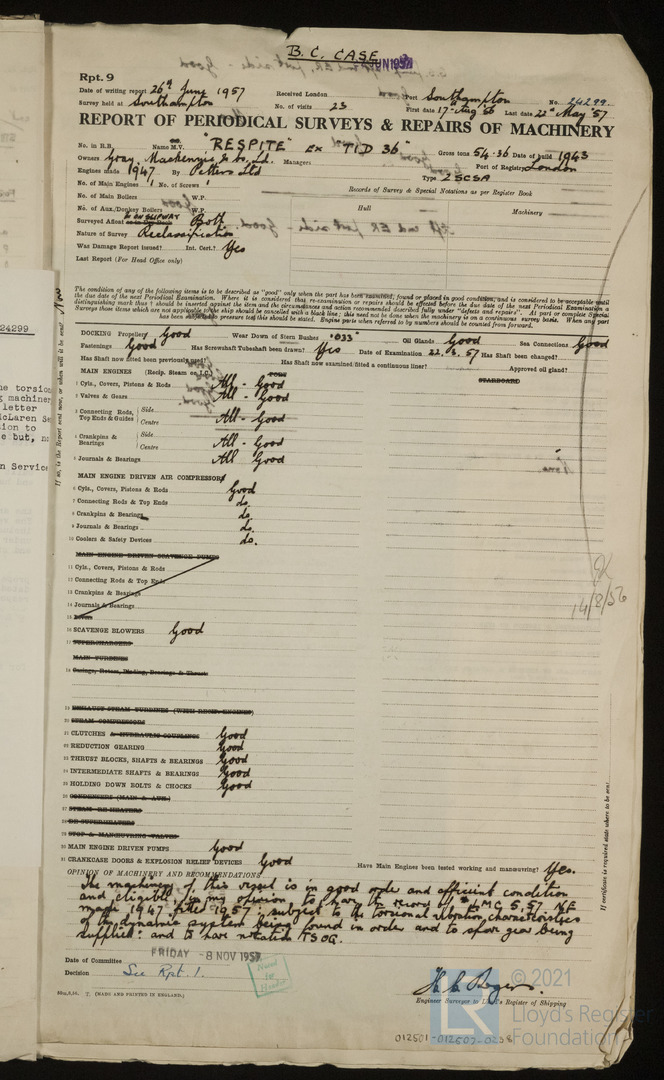 B. C. CASE
JUN 1957
Rpt. 9
Date of writing report 26th June 1957 Received London Port Southampton No. 24299.
Survey held at Southampton No. of visits 23 First date 17th Aug 56 Last date 22nd May '57
REPORT OF PERIODICAL SURVEYS & REPAIRS OF MACHINERY
No. in R.B. Name M.V. "RESPITE" Ex "TID 36" Gross tons 54.36 Date of build 1943
Owners Gray, Mackenzie & Co. Ltd. Managers Port of Registry London
Engines made 1947 By Petters Ltd Type 2SCSA
No. of Main Engines 1 No. of Screws 1 Records of Survey & Special Notations as per Register Book
No. of Main Boilers W.P.
No. of Aux./Donkey Boilers W.P. Hull Machinery
Surveyed Afloat & ON SLIPWAY Both
Nature of Survey Reclassification
War Damage Report issued? Int. Cert.? Yes
Last Report (For Head Office only)
The condition of any of the following items is to be described as "good" only when the part has been examined, found or placed in good condition, and is considered to be acceptable until
the due date of the next Periodical Examination. Where it is considered that re-examination or repairs should be effected before the due date of the next Periodical Examination a
distinguishing mark thus † should be inserted against the item and the circumstances and action recommended described fully under "defects and repairs". At part or complete Special
Surveys those items which are not applicable to the ship should be cancelled with a black line; this need not be done when the machinery is on a continuous survey basis. When any part
is tested under pressure test this should be stated. Engine parts when referred to by numbers should be counted from forward.
DOCKING Propeller Good Wear Down of Stern Bushes ·033 Oil Glands Good Sea Connections Good
Fastenings Good Has Screwshaft Tubeshaft been drawn? Yes Date of Examination 22.3.57 Has Shaft been changed?
Has Shaft now fitted been previously used? Has Shaft now examined/fitted a continuous liner? Approved oil gland?
MAIN ENGINES (Recip. Steam or I.C.) PORT STARBOARD
1 Cyls., Covers, Pistons & Rods All - Good
2 Valves & Gears All - Good
3 Connecting Rods, Top Ends & Guides Side Centre All - Good
4 Crankpins & Bearings Side Centre All - Good
5 Journals & Bearings All Good
MAIN ENGINE DRIVEN AIR COMPRESSOR
6 Cyls., Covers, Pistons & Rods Good
7 Connecting Rods & Top Ends do.
8 Crankpins & Bearings do.
9 Journals & Bearings do.
10 Coolers & Safety Devices do.
MAIN ENGINE DRIVEN SCAVENGE PUMPS
11 Cyls., Covers, Pistons & Rods
12 Connecting Rods & Top Ends
13 Crankpins & Bearings
14 Journals & Bearings
14/8/56
16 SCAVENGE BLOWERS Good
17 SUPERCHARGERS
MAIN TURBINES
18 Casings, Rotors, Blading, Bearings & Thrusts
19 EXHAUST STEAM TURBINES (WITH RECIP. ENGINES)
20 STEAM COMPRESSORS
21 CLUTCHES & HYDRAULIC COUPLINGS Good
22 REDUCTION GEARING Good
23 THRUST BLOCKS, SHAFTS & BEARINGS Good
24 INTERMEDIATE SHAFTS & BEARINGS Good
25 HOLDING DOWN BOLTS & CHOCKS Good
26 CONDENSERS (MAIN & AUX.)
27 STEAM RE-HEATERS
28 DE-SUPERHEATERS
29 STOP & MANŒUVRING VALVES
30 MAIN ENGINE DRIVEN PUMPS Good
31 CRANKCASE DOORS & EXPLOSION RELIEF DEVICES Good
Have Main Engines been tested working and manœuvring? Yes.
OPINION OF MACHINERY AND RECOMMENDATIONS
The machinery of this vessel is in good order and efficient condition
and eligible in my opinion to have the record of LMC 5,57 NE
made 1947 fitted 1957: subject to the torsional vibration characteristics
of the dynamic system being found in order and to spare gear being
supplied: and to have notation TSOG.
Date of Committee FRIDAY - 8 NOV 1957
Decision See Rpt. 1.
H. C. Rogers.
Engineer Surveyor to Lloyd's Register of Shipping
T. (MADE AND PRINTED IN ENGLAND.)
If certificate is required state where to be sent
24299
he torsion
g machiner
letter
McLaren Se
ion to
but, n
n Service
© 2021
Lloyd's Register
Foundation
LR
012501-012507-0238